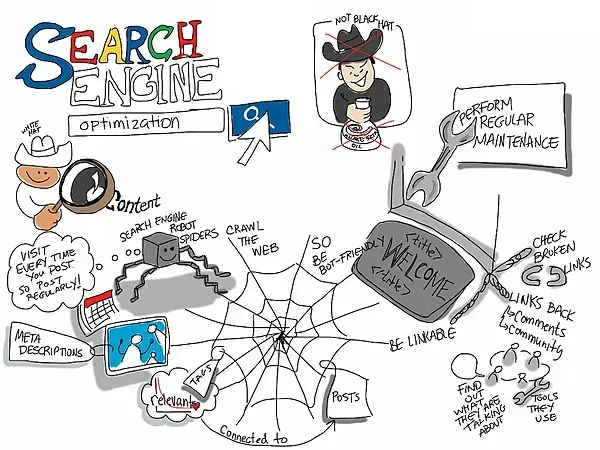 SEARCH
ENGINE
optimization
NOT BLACK HAT
SNAKE
OIL
PERFORM
REGULAR
MAINTENANCE
WHITE
HAT
Content
SEARCH ENGINE
ROBOT
SPIDERS
CRAWL
THE
WEB
SO
BE
BOT-FRIENDLY
<title>
WELCOME
</title>
CHECK
BROKEN
LINKS
VISIT
EVERY TIME
YOU POST
SO POST
REGULARLY!
LINKS BACK
↳Comments
↳Community
BE LINKABLE
META
DESCRIPTIONS
TAGS
relevant
POSTS
Connected to
FIND
OUT
WHAT
THEY ARE
TALKING
ABOUT
TOOLS
THEY
USE